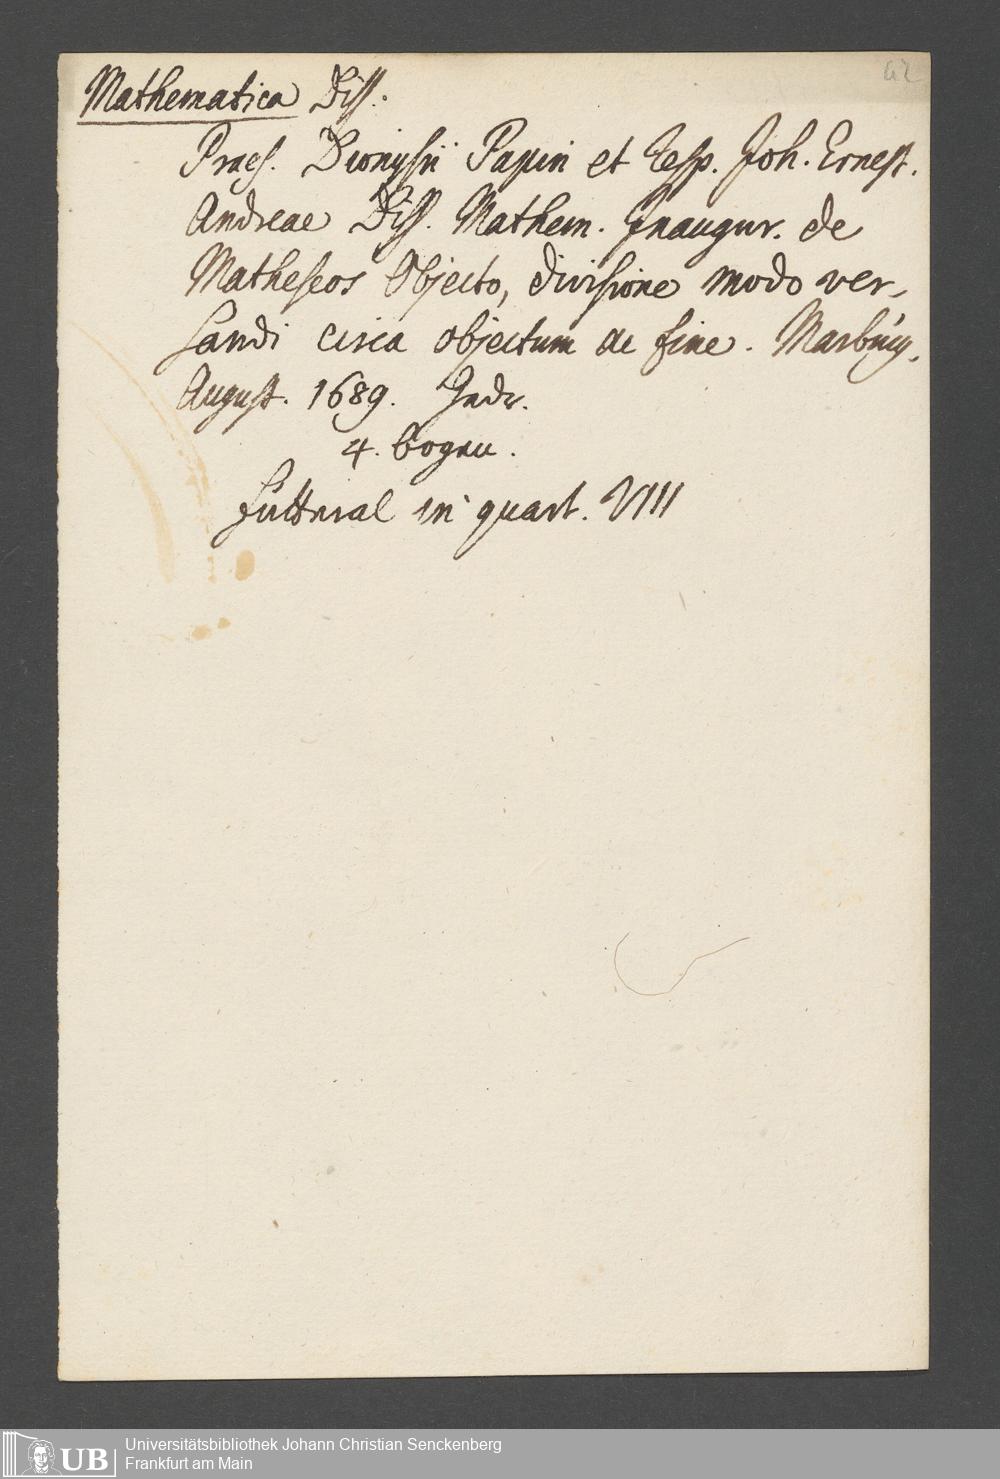 Mathematica Diss.
62
Praes. Dionysii Papin et Resp. Joh. Ernest.
Andreae Diss. Mathem. Inaugur. de
Matheseos Objecto, divisione modo ver-
sandi circa objectum ac fine. Marburg.
August. 1689. Gedr.
4. bogen.
Futteral in quart. VIII
UB
Universitätsbibliothek Johann Christian Senckenberg
Frankfurt am Main